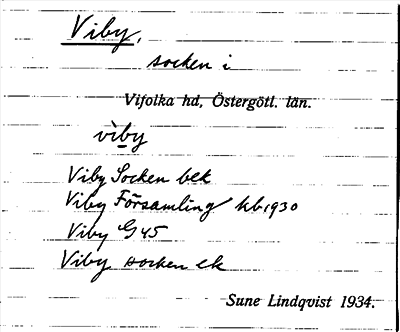 Viby,
socken i
Vifolka hd, Östergötl. län.
vìby
Viby Socken bek
Viby Församling kb 1930
Viby G 45
Viby socken ek
Sune Lindqvist 1934.